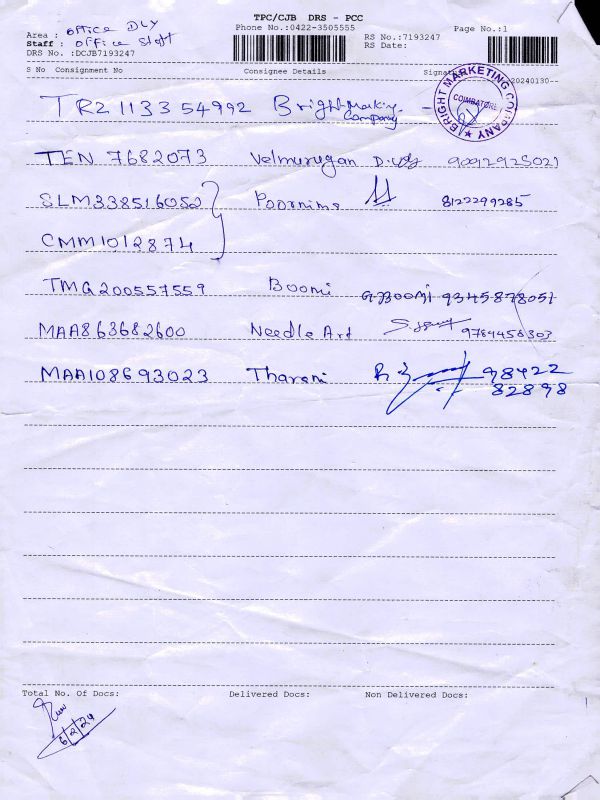 TPC/CJB DRS - PCC
Phone No.:0422-3505555
Page No.:1
Area : office DLY
Staff : office Staff
RS No.:7193247
DRS No. :DCJB7193247
RS Date:
S No Consignment No Consignee Details Signatu 20240130--
TRZ 1133 54992 Bright Marketing Company
BRIGHT MARKETING COMPANY
COIMBATORE
TEN 7682073 Velmurugan 9092925021
SLM338516052 Poornima 8122299285
CMM1012874
TMQ200557559 Boomi G.BOOMI 9345878051
MAA863682600 Needle Art 9789456303
MAA108693023 Tharani 98422
82898
Total No. Of Docs: Delivered Docs: Non Delivered Docs:
6/2/24